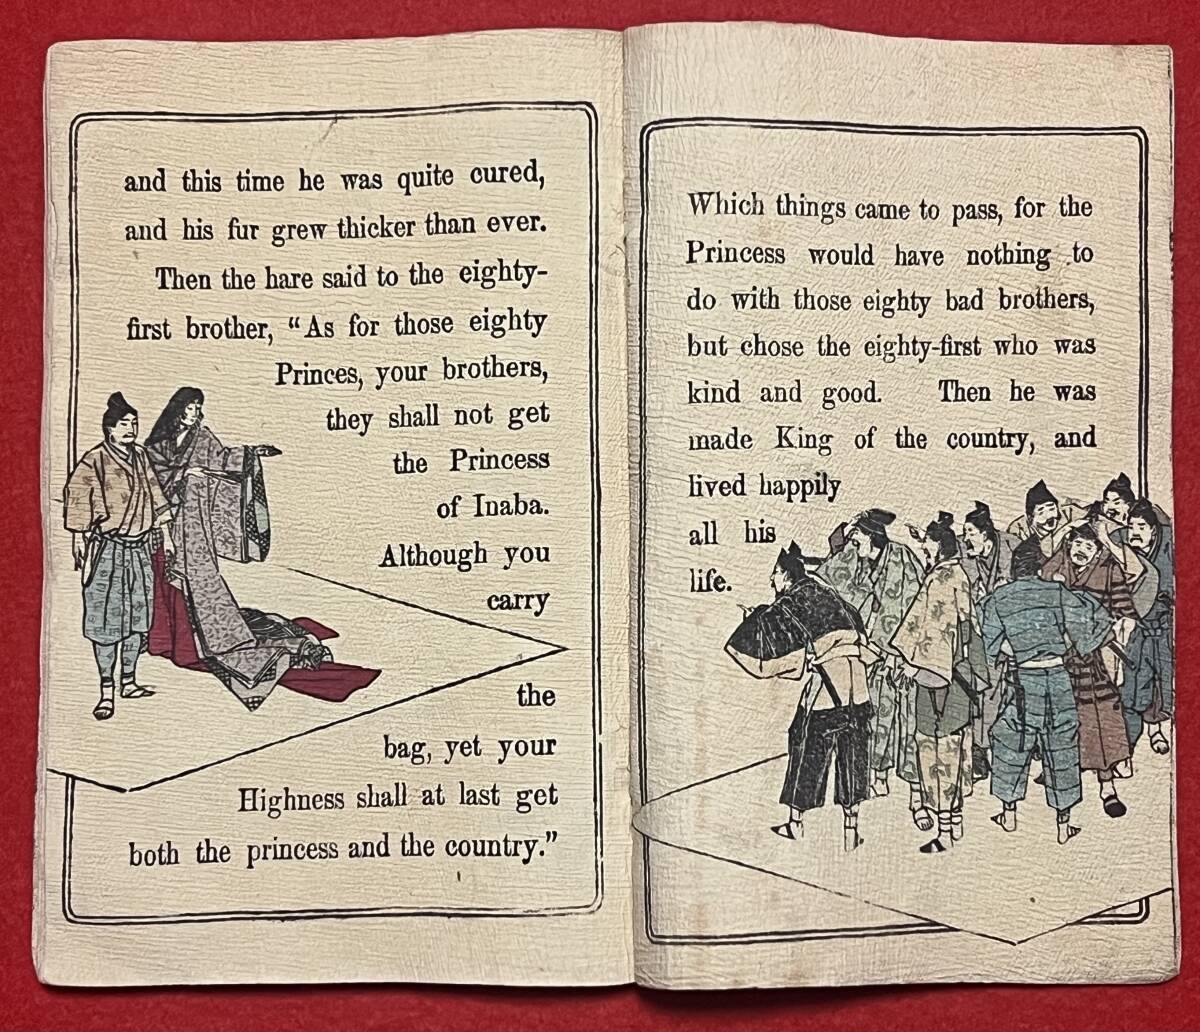 and this time he was quite cured,
and his fur grew thicker than ever.
Then the hare said to the eighty-
first brother, “As for those eighty
Princes, your brothers,
they shall not get
the Princess
of Inaba.
Although you
carry
the
bag, yet your
Highness shall at last get
both the princess and the country.”
Which things came to pass, for the
Princess would have nothing to
do with those eighty bad brothers,
but chose the eighty-first who was
kind and good. Then he was
made King of the country, and
lived happily
all his
life.